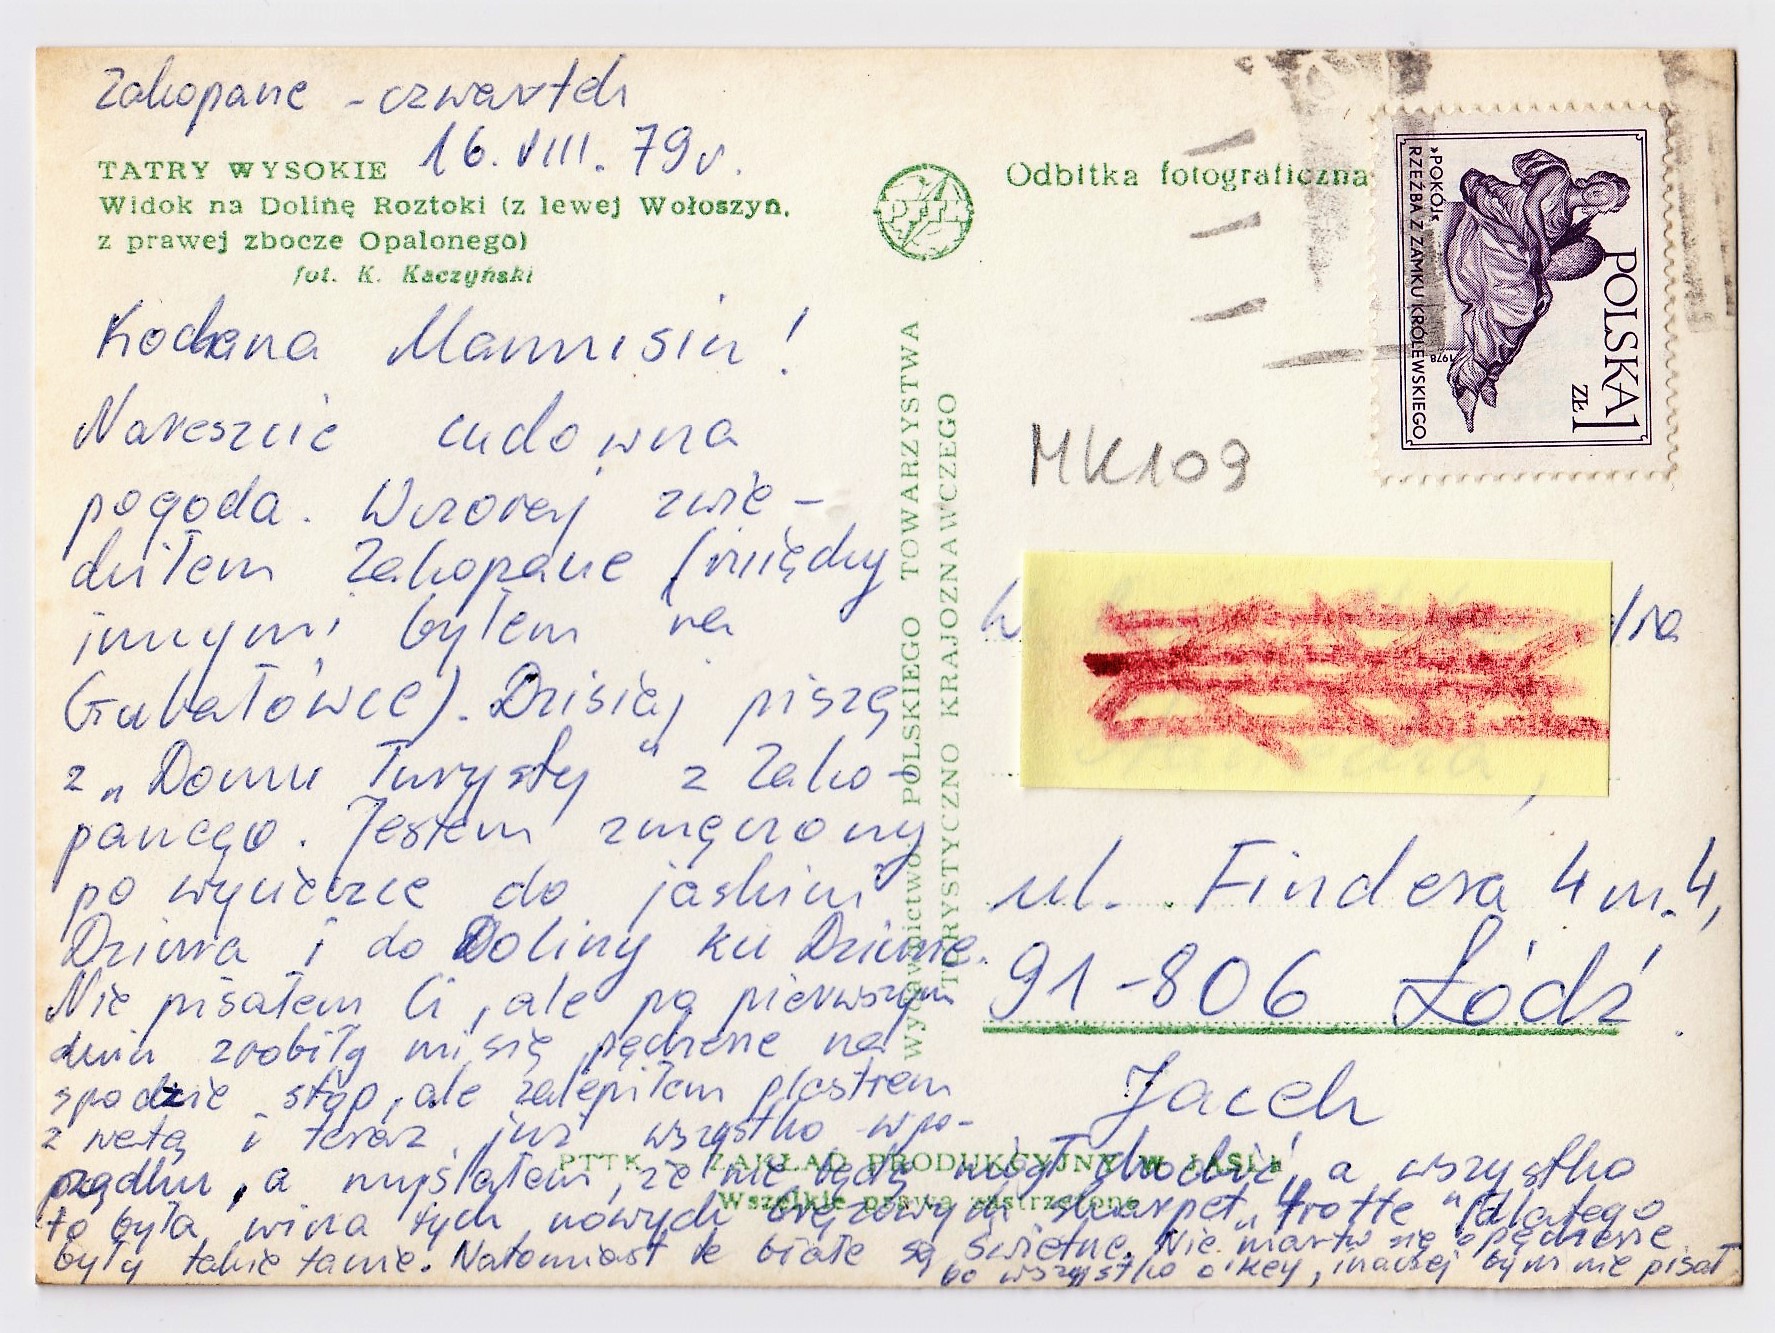 Zakopane - czwartek
16. VIII. 79 r.
TATRY WYSOKIE
Widok na Dolinę Roztoki (z lewej Wołoszyn,
z prawej zbocze Opalonego)
fot. K. Kaczyński
Kochana Mamusiu!
Nareszcie cudowna
pogoda. Wczoraj zwie-
dziłem Zakopane (między
innymi byłem na
Gubałówce). Dzisiaj piszę
z „Domu Turysty" z Zako-
panego. Jestem zmęczony
po wycieczce do jaskini
Dziura i do Doliny ku Dziurze.
Nie pisałem Ci, ale po pierwszym
dniu zrobiły mi się pęcherze na
spodzie stóp, ale zalepiłem plastrem
z watą i teraz już wszystko w po-
rządku, a myślałem, że nie będę mógł chodzić, a wszystko
to była wina tych nowych brązowych skarpet „frotte" (dlatego
były takie tanie. Natomiast te białe są świetne. Nie martw się o pęcherze
bo wszystko o'key, inaczej bym nie pisał
Wydawnictwo: POLSKIEGO TOWARZYSTWA
TURYSTYCZNO KRAJOZNAWCZEGO
PTTK
Odbitka fotograficzna
POLSKA 1
ZŁ
1978
»POKÓJ«
RZEŹBA Z ZAMKU KRÓLEWSKIEGO
MK109
W
ul. Findera 4 m. 4,
91-806 Łódź.
Jacek
PTTK ZAKŁAD PRODUKCYJNY W JAŚLE
Wszelkie prawa zastrzeżone